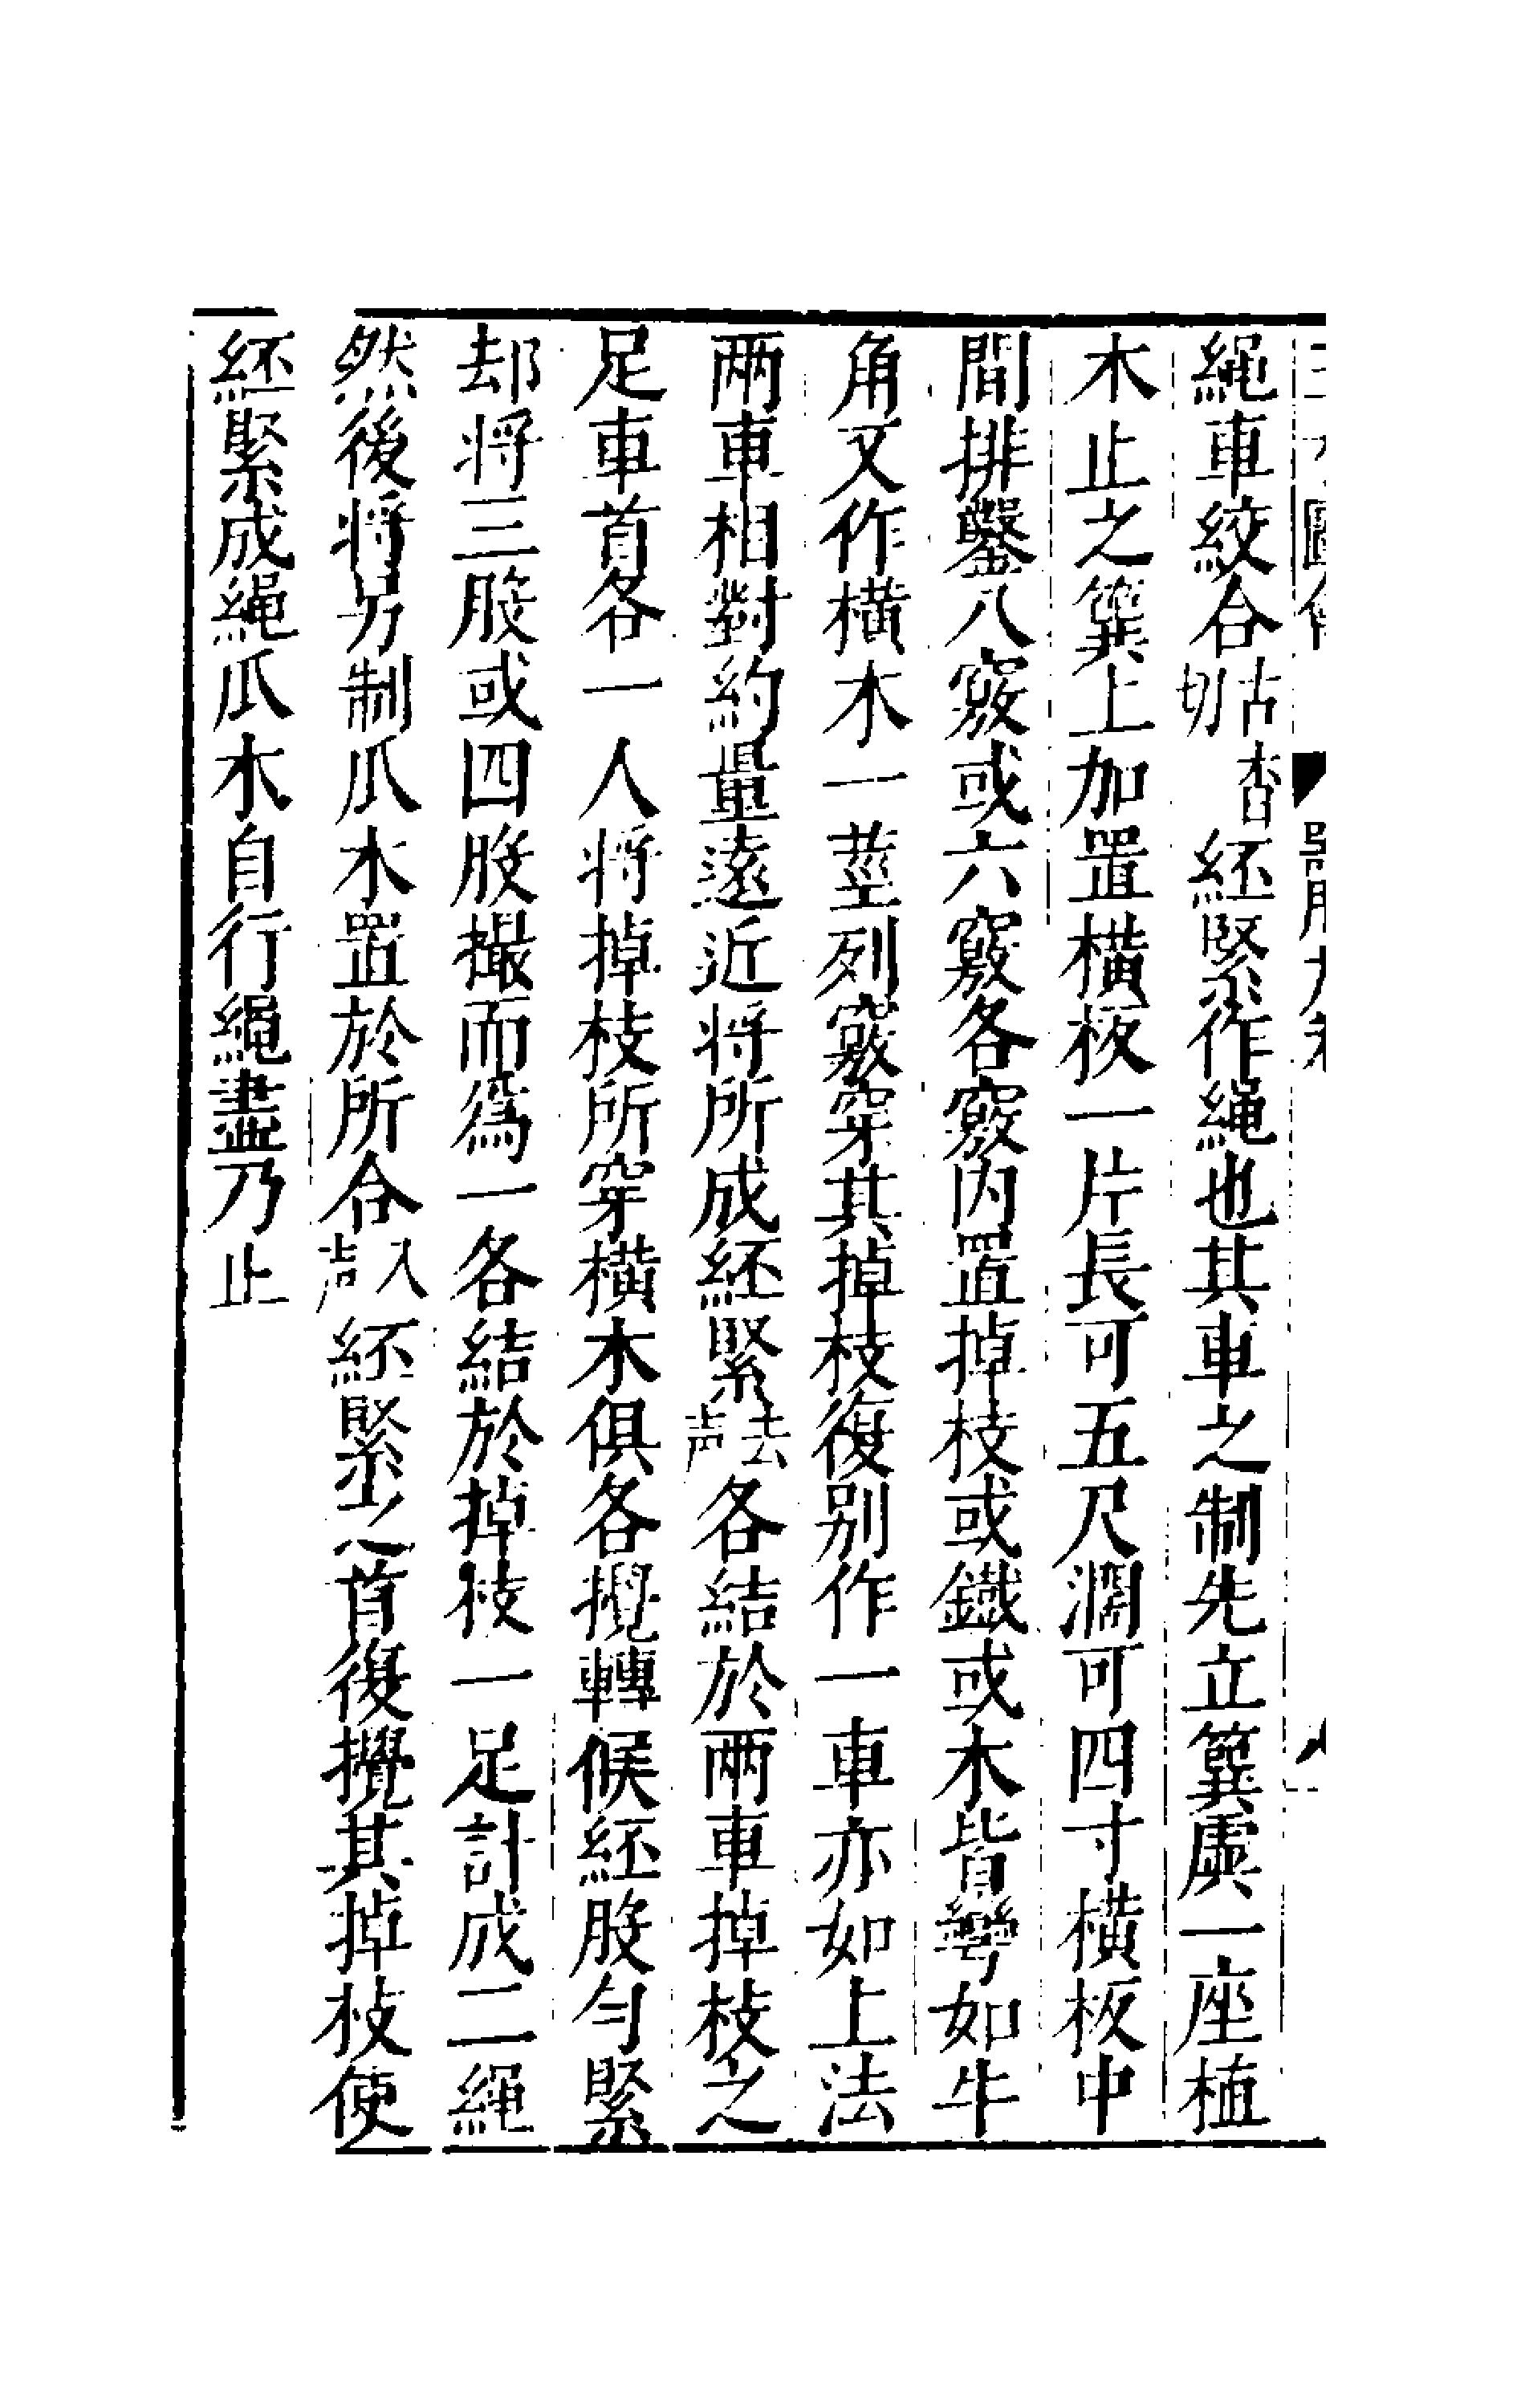 繩車絞合古杏切紝緊作繩也其車之制先立簨虡一座植
木止之簨上加置橫板一片長可五尺濶可四寸橫板中
間排鑿八竅或六竅各竅內置掉枝或鐵或木皆彎如牛
角又作橫木一莖列竅穿其掉枝復别作一車亦如上法
兩車相對約量遠近將所成紝緊去声各結於兩車掉枝之
足車首各一人將掉枝所穿橫木俱各攪轉候紝股勻緊
却将三股或四股撮而爲一各結於掉枝一足計成二繩
然後將另制瓜木置於所合入声紝緊之首復攪其掉枝使
紝緊成繩瓜木自行繩盡乃止